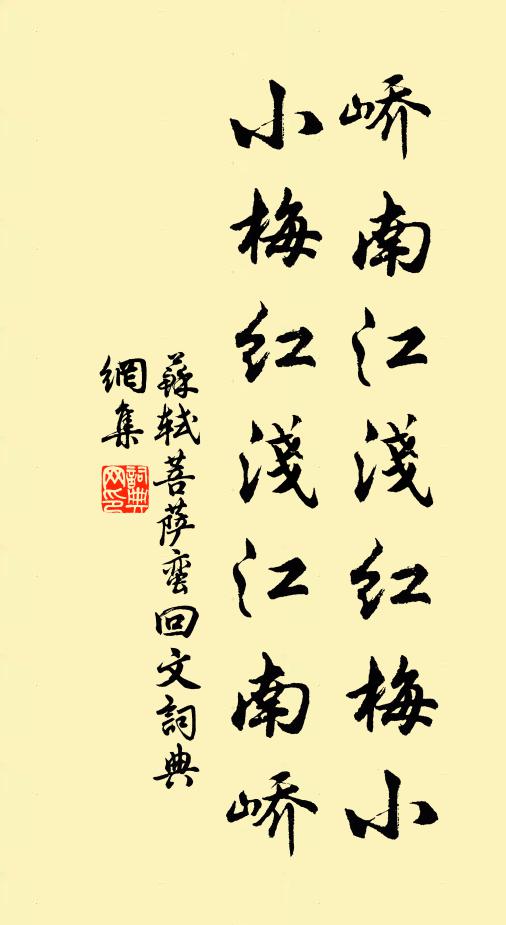 峤南江淺红梅小
小梅红淺江南峤
蘇軾菩萨蛮回文詞典
網集
詞典
网印